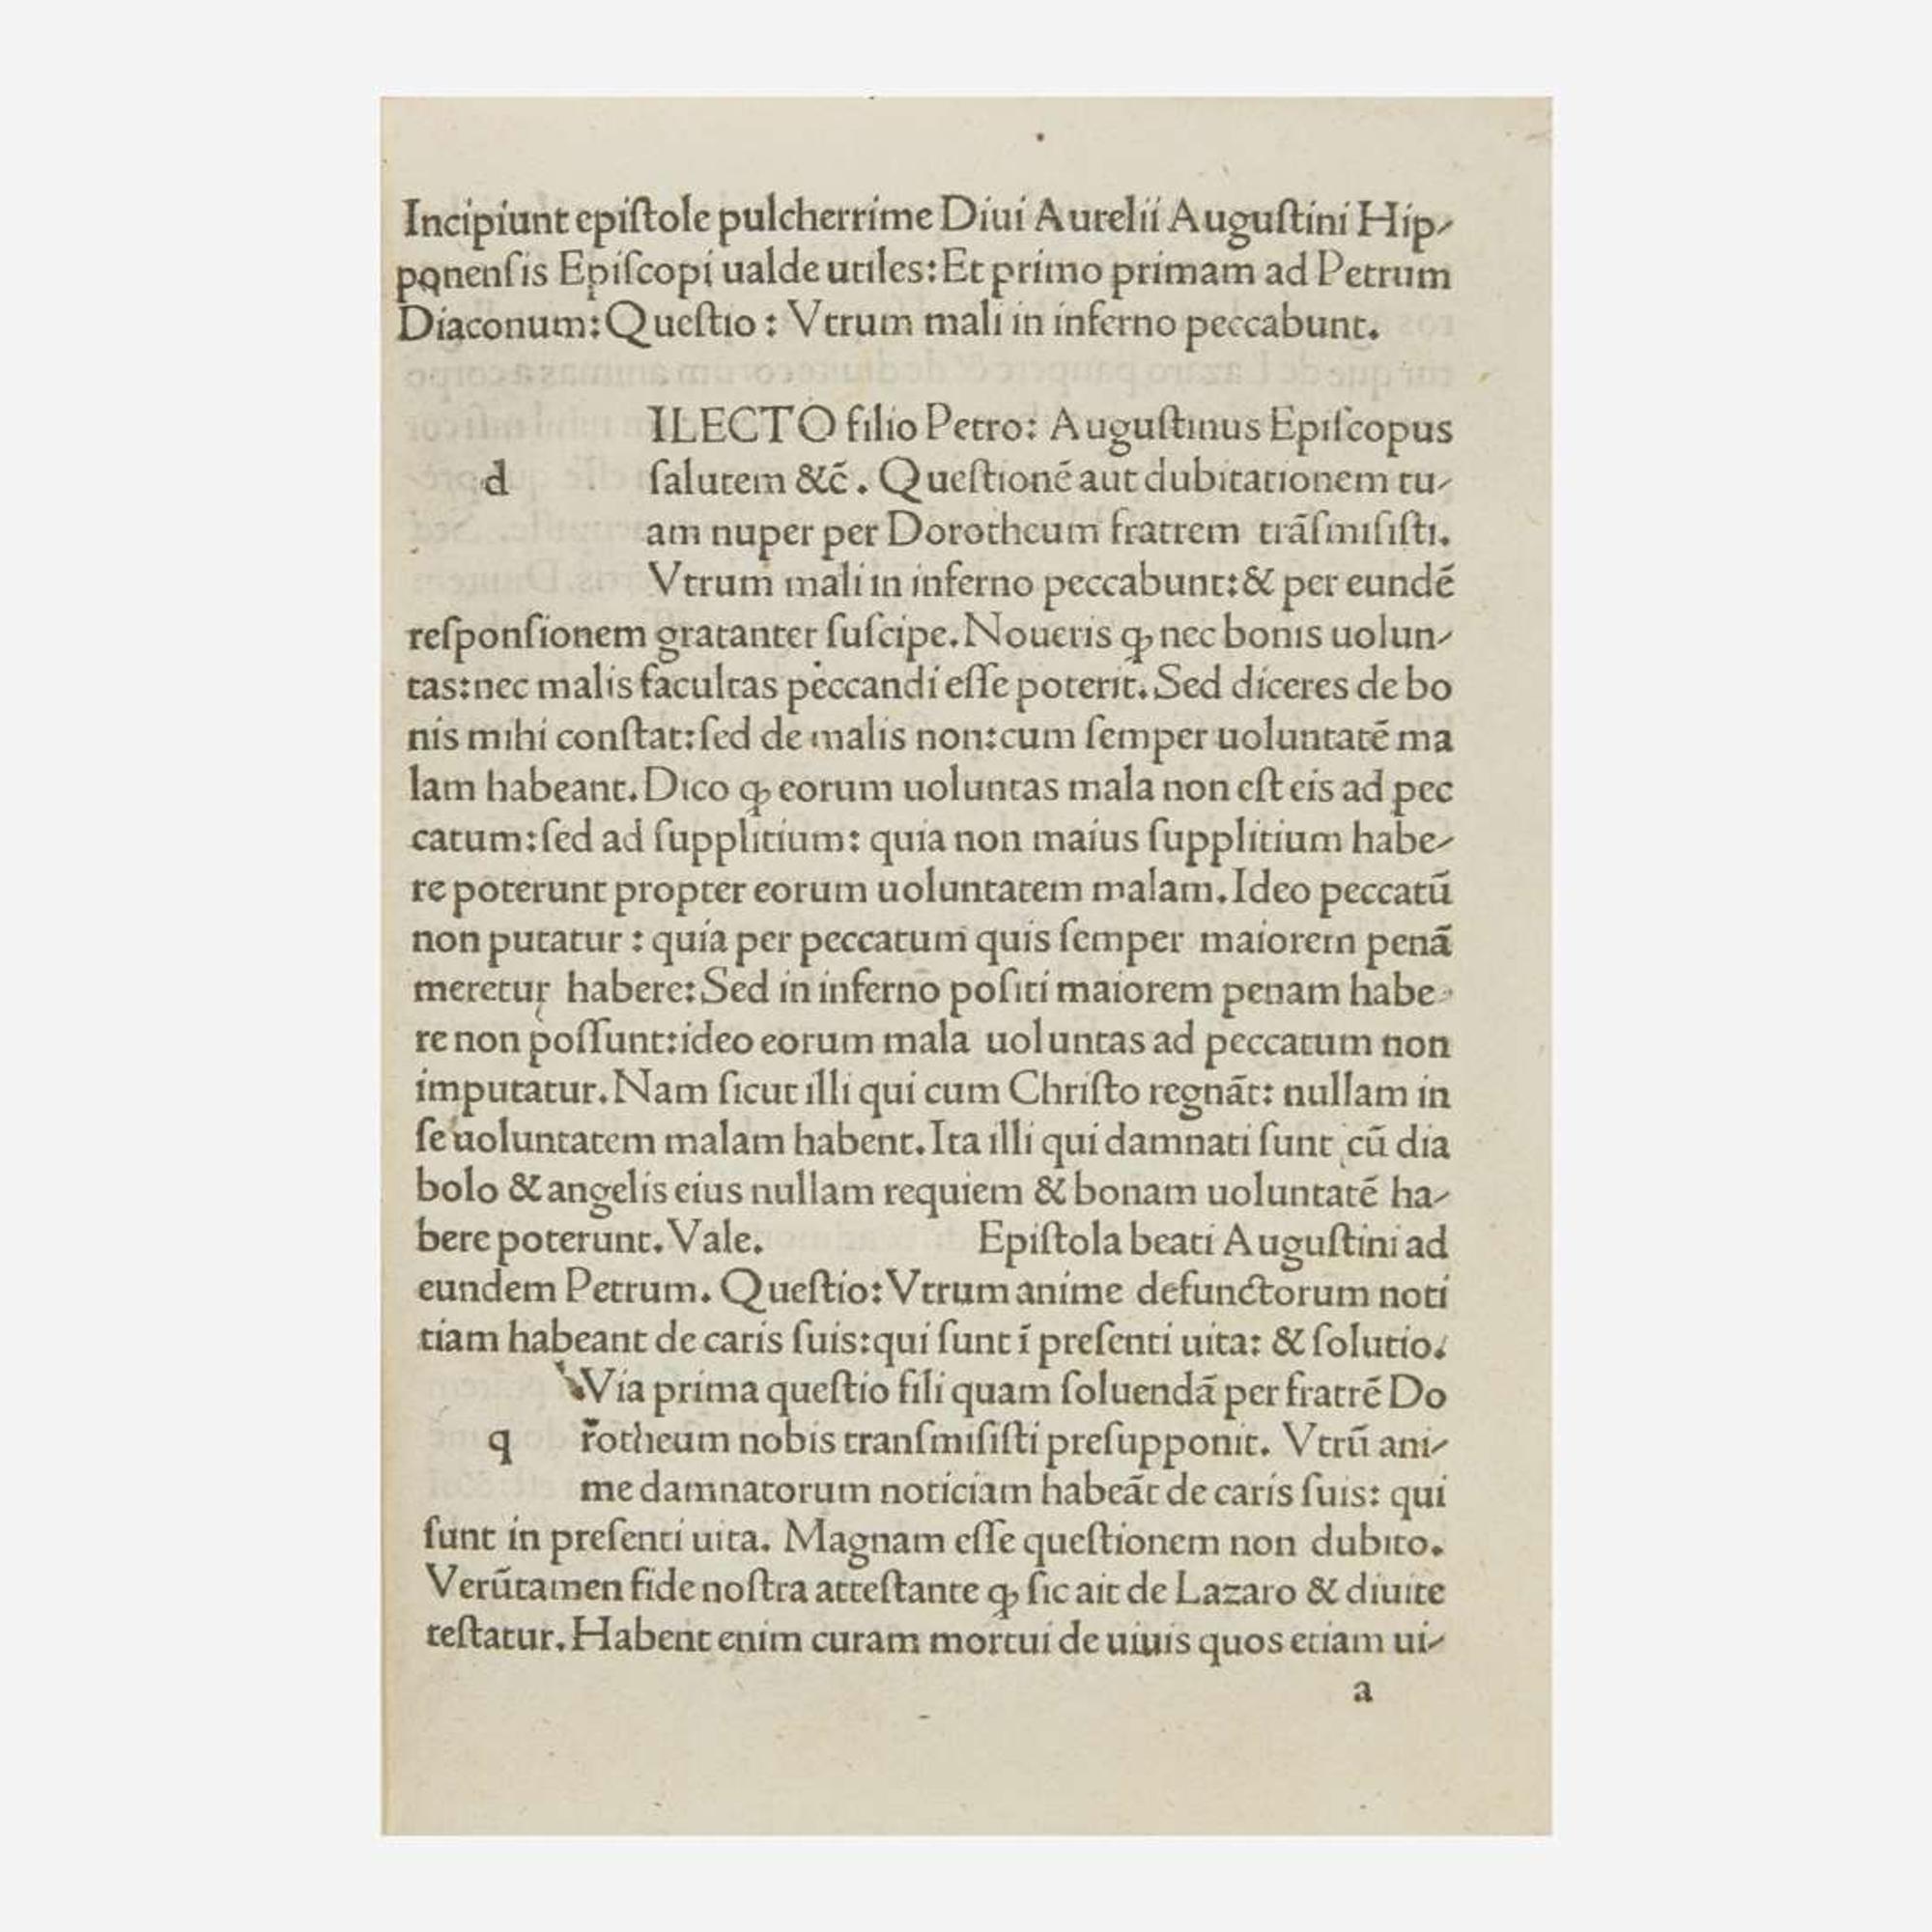 Incipiunt epiſtole pulcherrime Diui Aurelii Auguſtini Hip-
ponenſis Epiſcopi ualde utiles: Et primo primam ad Petrum
Diaconum: Queſtio : Vtrum mali in inferno peccabunt.
ILECTO filio Petro: Auguſtinus Epiſcopus
d ſalutem &c̄. Queſtionē aut dubitationem tu-
am nuper per Dorotheum fratrem trāſmiſiſti.
Vtrum mali in inferno peccabunt: & per eundē
reſponſionem gratanter ſuſcipe. Noueris ꝙ nec bonis uolun-
tas: nec malis facultas peccandi eſſe poterit. Sed diceres de bo
nis mihi conſtat: ſed de malis non: cum ſemper uoluntatē ma
lam habeant. Dico ꝙ eorum uoluntas mala non eſt eis ad pec
catum: ſed ad ſupplitium: quia non maius ſupplitium habe-
re poterunt propter eorum uoluntatem malam. Ideo peccatū
non putatur : quia per peccatum quis ſemper maiorem penā
meretur habere: Sed in inferno poſiti maiorem penam habe-
re non poſſunt: ideo eorum mala uoluntas ad peccatum non
imputatur. Nam ſicut illi qui cum Chriſto regnāt: nullam in
ſe uoluntatem malam habent. Ita illi qui damnati ſunt cū dia
bolo & angelis eius nullam requiem & bonam uoluntatē ha-
bere poterunt. Vale. Epiſtola beati Auguſtini ad
eundem Petrum. Queſtio: Vtrum anime defunctorum noti
tiam habeant de caris ſuis: qui ſunt ī preſenti uita: & ſolutio.
Via prima queſtio fili quam ſoluendā per fratrē Do
q rotheum nobis tranſmiſiſti preſupponit. Vtrū ani-
me damnatorum noticiam habeāt de caris ſuis: qui
ſunt in preſenti uita. Magnam eſſe queſtionem non dubito.
Verūtamen fide noſtra atteſtante ꝙ ſic ait de Lazaro & diuite
teſtatur. Habent enim curam mortui de uiuis quos etiam ui-
a